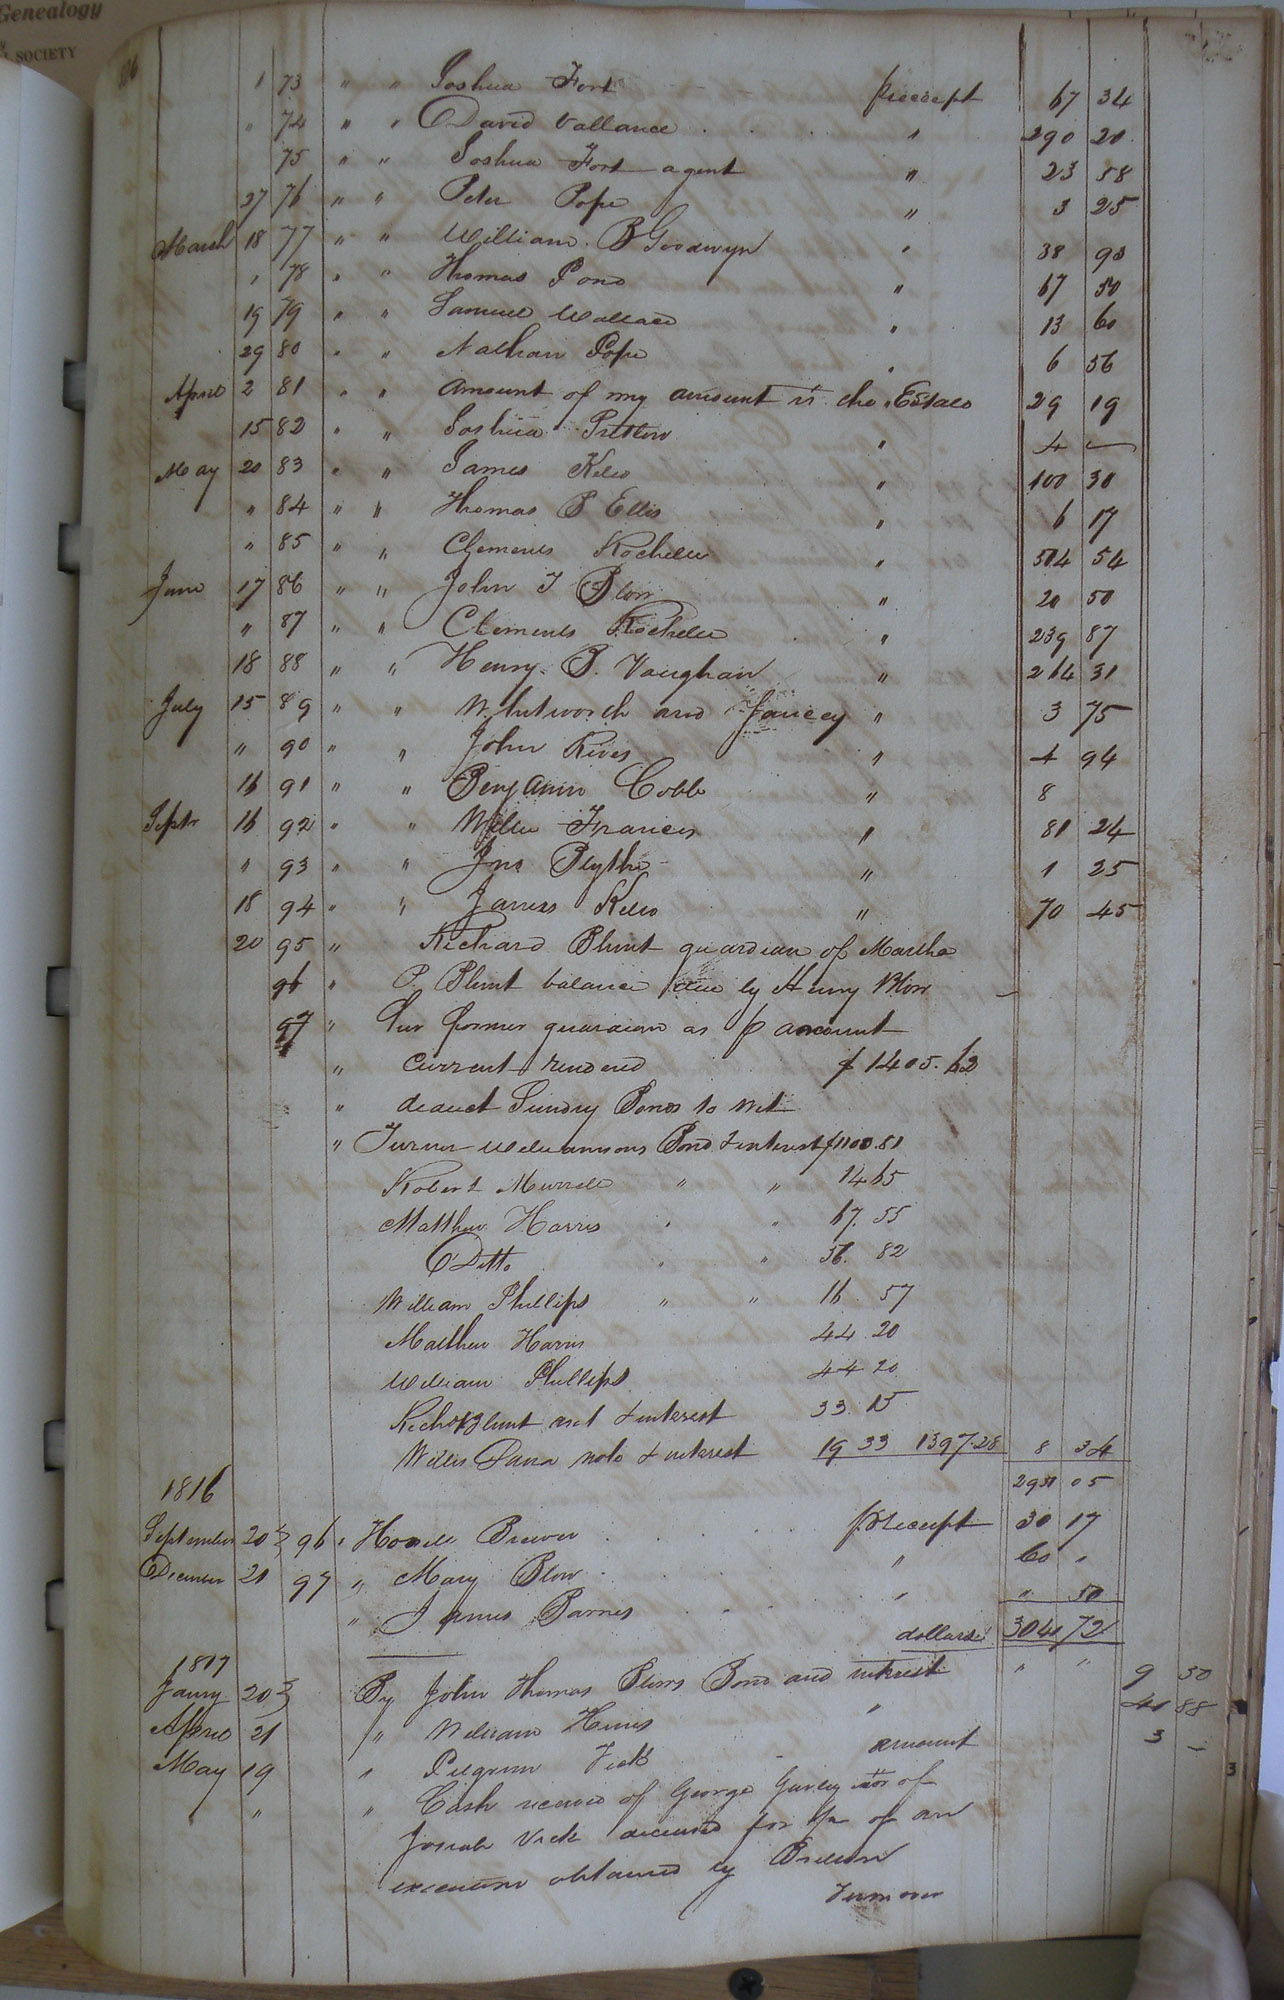 Genealogy
SOCIETY
1 73 " " Joshua Fort pr receipt 67 34
" 74 " " David Vallance " 290 20
75 " " Joshua Fort agent " 23 58
27 76 " " Peter Pope " 3 25
March 18 77 " " William B Goodwyn " 38 90
" 78 " " Thomas Pond " 67 50
19 79 " " Samuel Wallace " 13 60
29 80 " " Nathan Pope " 6 56
April 2 81 " " Amount of my amount vs the Estate 29 19
15 82 " " Joshua Pretlow " 4 —
May 20 83 " " James Kelso " 100 30
" 84 " " Thomas P Ellis " 6 17
" 85 " " Clements Rochelle " 504 54
June 17 86 " " John T Blow " 20 50
" 87 " " Clements Rochelle " 239 87
18 88 " " Henry B. Vaughan " 264 31
July 15 89 " " Whitworth and Yancey " 3 75
" 90 " " John Rives " 4 94
16 91 " " Benjamin Cobb " 8
Septr 16 92 " " Willie Francis " 81 24
" 93 " " Jno Blythe " 1 25
18 94 " " James Kelso " 70 45
20 95 " Richard Blunt guardian of Martha
96 " P. Blunt balance due by Henry Blow
97 " her former guardian as p amount
" current rendered $ 1405.62
" deduct Sundry Bonds to wit
" Turner Williamsons Bond & interest $1100.81
Robert Murrell " " 14 65
Matthew Harris " " 67. 55
Ditto " " 56. 82
William Phillips " " 16 57
Matthew Harris 44 20
William Phillips 44 20
Richd Blunt act & interest 33. 15
Willis note & interest 19 33 1397.28 8 34
2951 05
1816
September 20 96 " Howell Brewer pr receipt 30 17
December 21 97 " Mary Blow " 60 "
" James Barnes " " 50
dollars 3041 72
1817
Jany 20 By John Thomas Blows Bond and interest " " 9 50
April 21 " William Hines " 41 88
May 19 " Pilgrim Vick amount 3 —
" " Cash received of George Gurley of
Josiah Vick deceased for of an
execution obtained by
Turn over